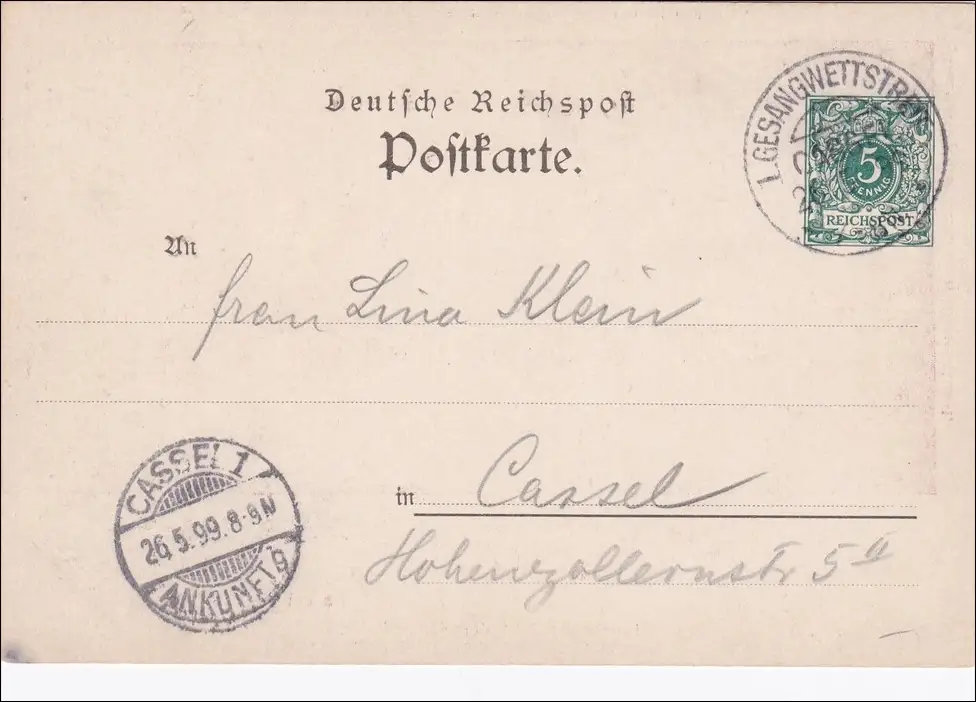 Deutsche Reichspost
Postkarte.
I. GESANGWETTSTREIT
CASSEL
26
5
PFENNIG
REICHSPOST
An
Frau Lina Klein
in Cassel
Hohenzollernstr 5a
CASSEL 1
26.5.99.8-9N
ANKUNFT.g